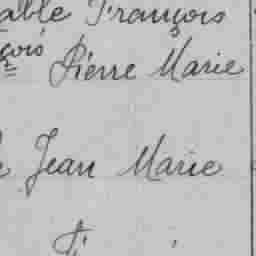 able François
çois Pierre Marie
Jean Marie